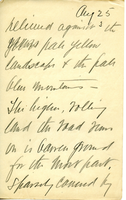 Aug 25
relieved against the
pale yellow
landscape & the pale
blue mountains –
The higher, rolling
land the road runs
on is barren ground
for the most part,
sparsely covered by